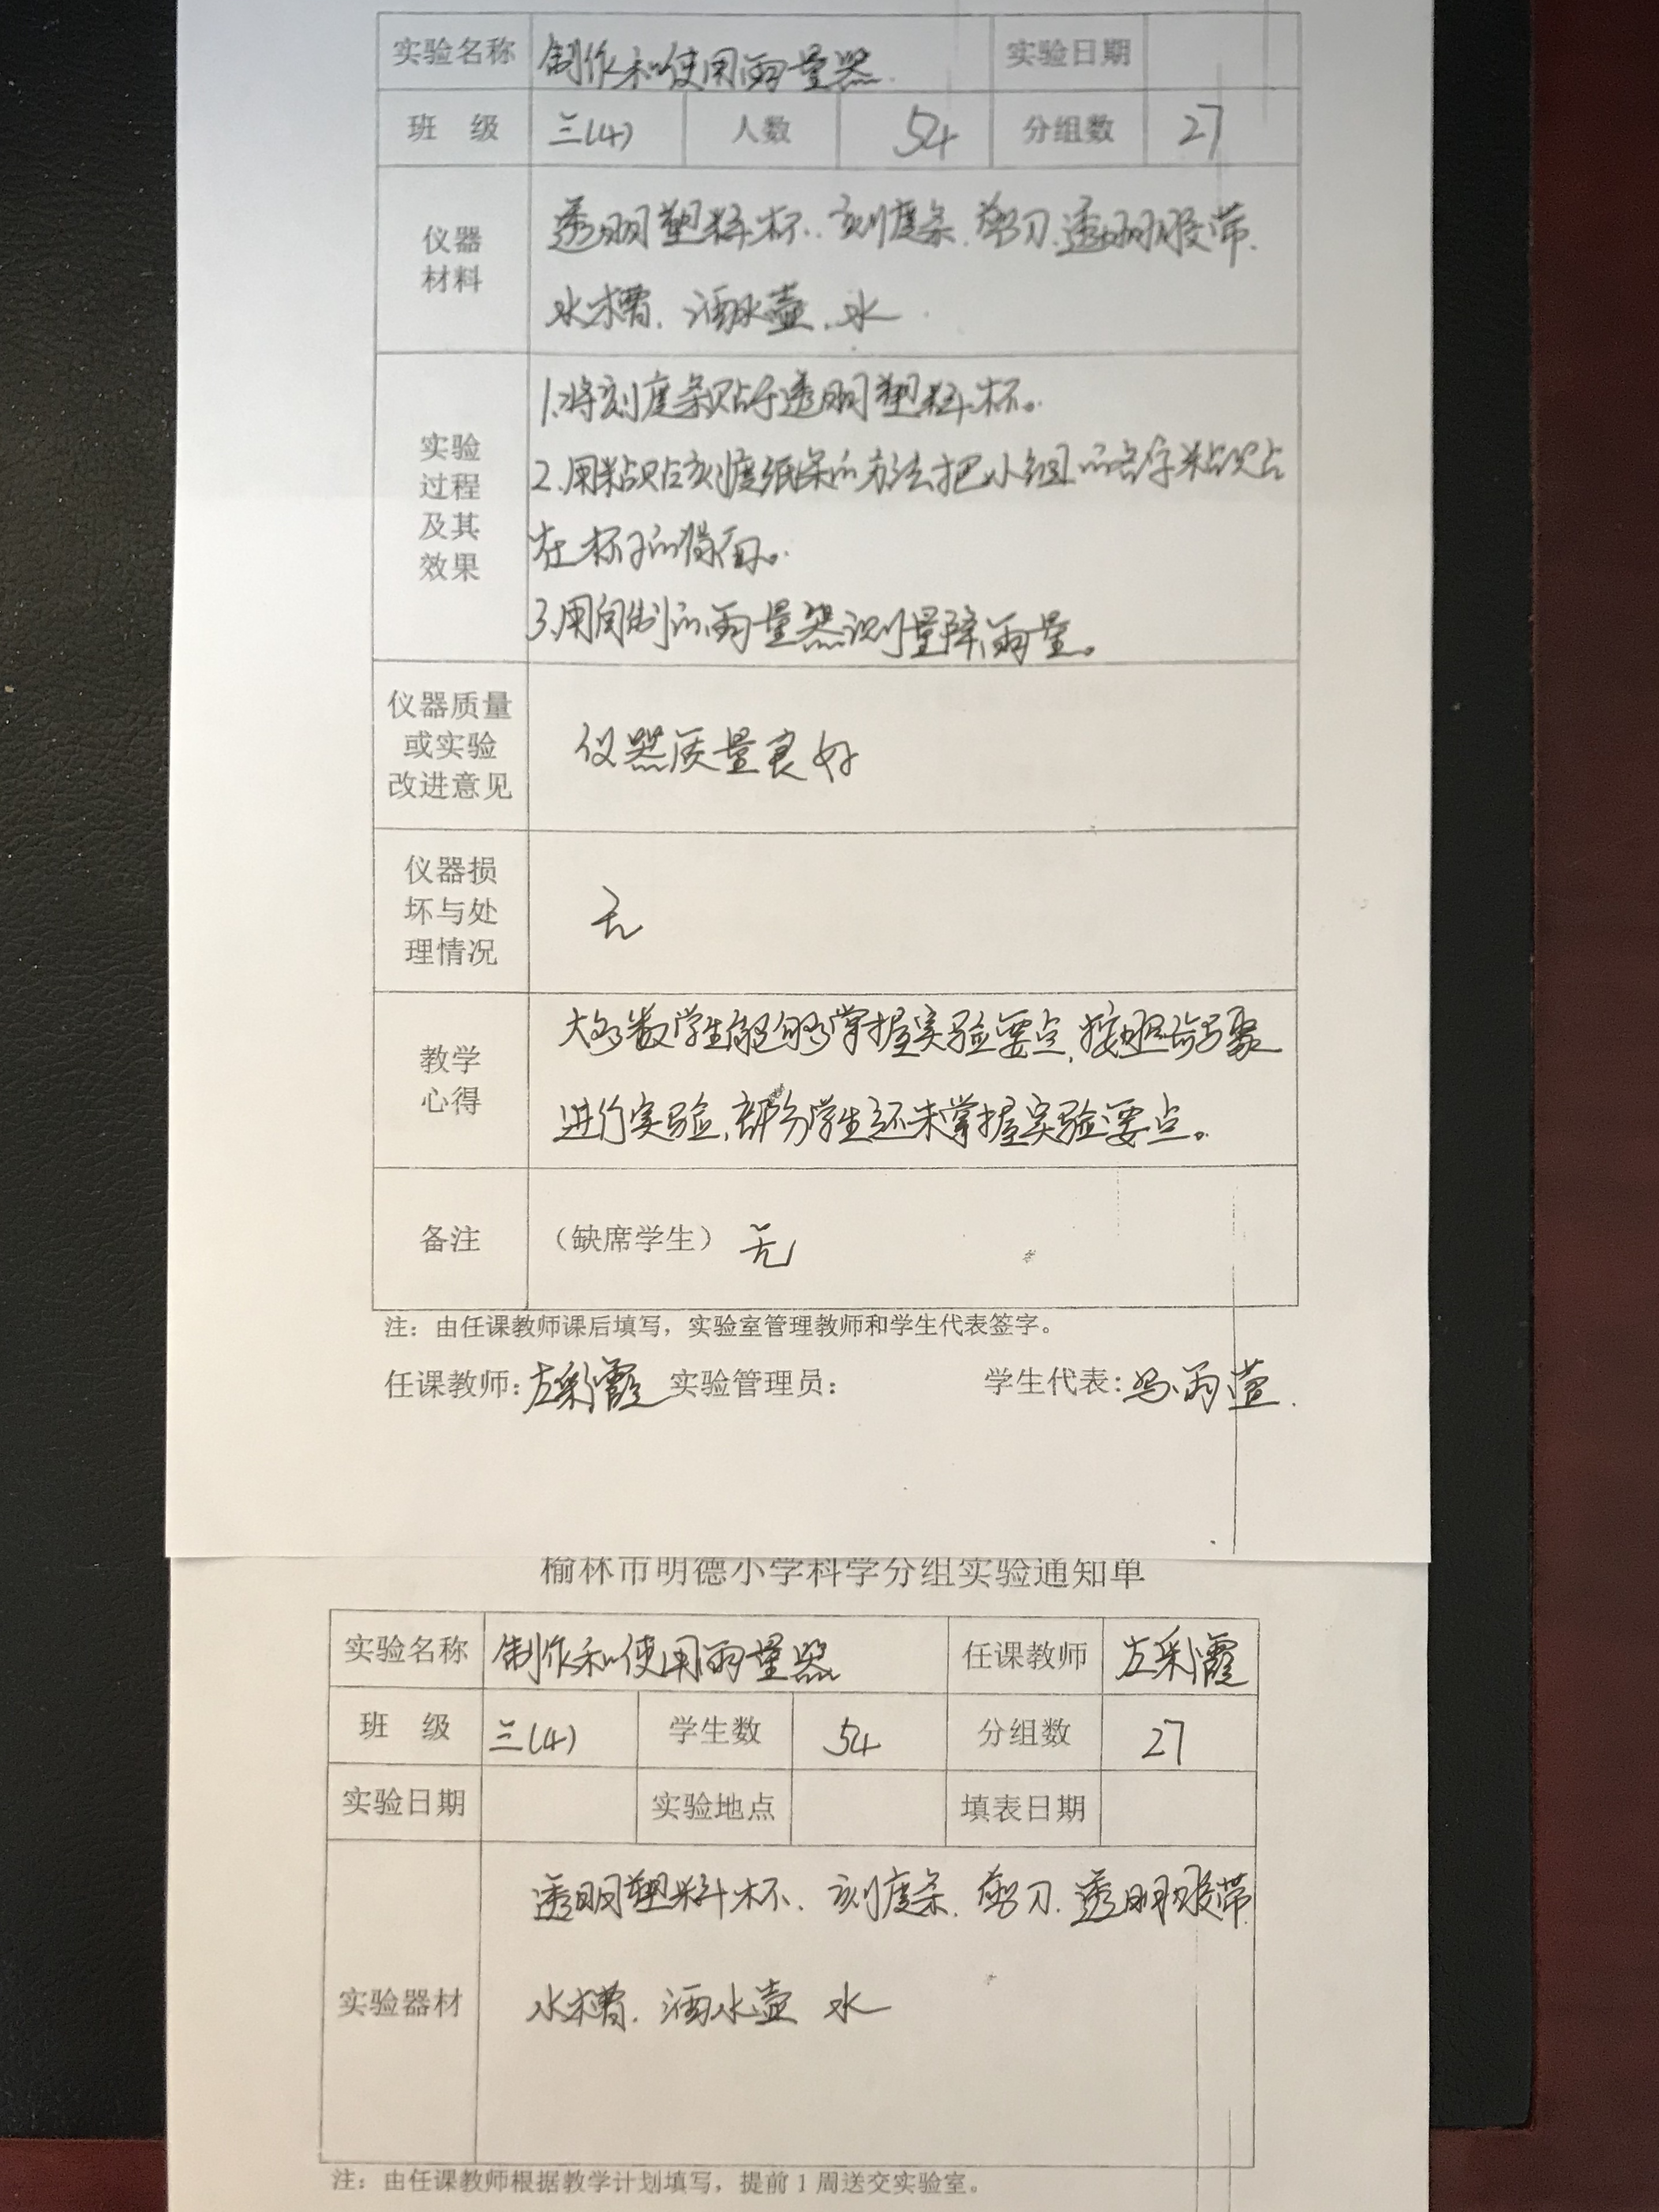 实验名称 制作和使用雨量器 实验日期
班 级 三(4) 人数 54 分组数 27
仪器
材料
透明塑料杯、刻度条、剪刀、透明胶带、
水槽、洒水壶、水
实验
过程
及其
效果
1.将刻度条贴于透明塑料杯。
2.用粘贴刻度纸条的方法把小组的名字粘贴
在杯子的背面。
3.用自制的雨量器测量降雨量。
仪器质量
或实验
改进意见
仪器质量良好
仪器损
坏与处
理情况
无
教学
心得
大多数学生能够掌握实验要点,按照步骤
进行实验,部分学生还未掌握实验要点。
备注 （缺席学生） 无
注：由任课教师课后填写，实验室管理教师和学生代表签字。
任课教师：左彩霞 实验管理员： 学生代表：冯雨萱.
榆林市明德小学科学分组实验通知单
实验名称 制作和使用雨量器 任课教师 左彩霞
班 级 三(4) 学生数 54 分组数 27
实验日期 实验地点 填表日期
实验器材
透明塑料杯、刻度条、剪刀、透明胶带
水槽、洒水壶 水
注：由任课教师根据教学计划填写，提前 1 周送交实验室。